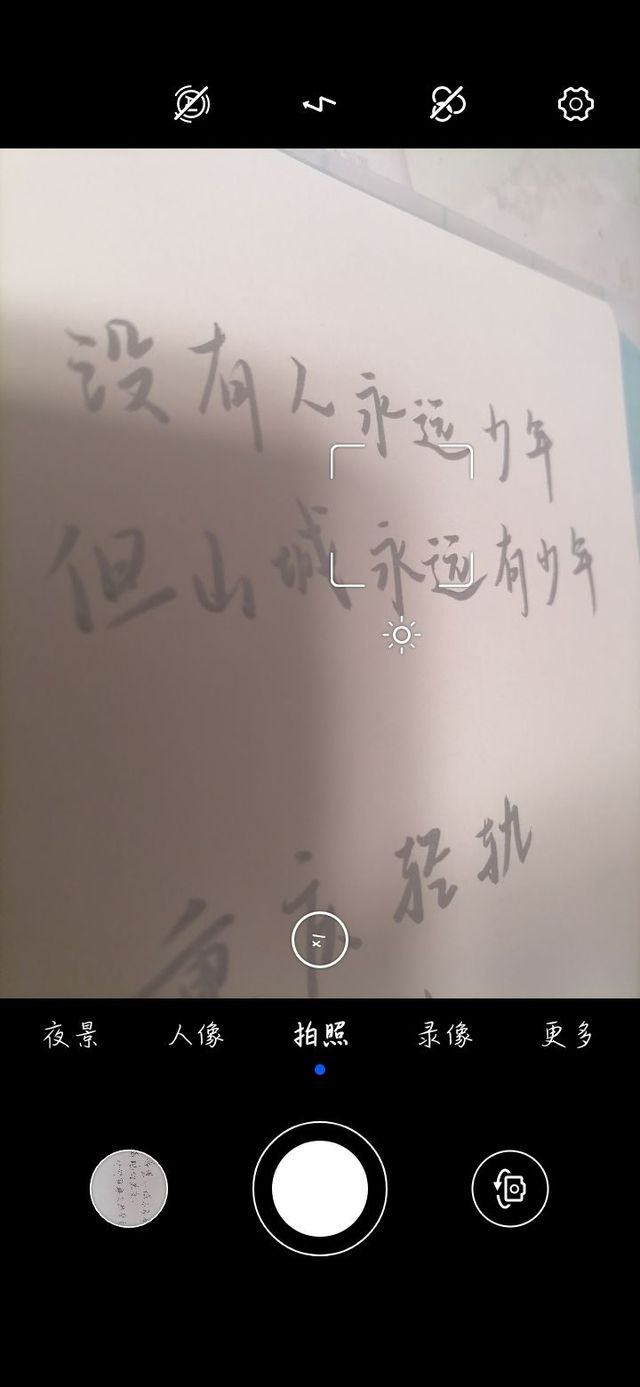 没有人永远少年
但山城永远有少年
重庆轻轨
1x
夜景 人像 拍照 录像 更多